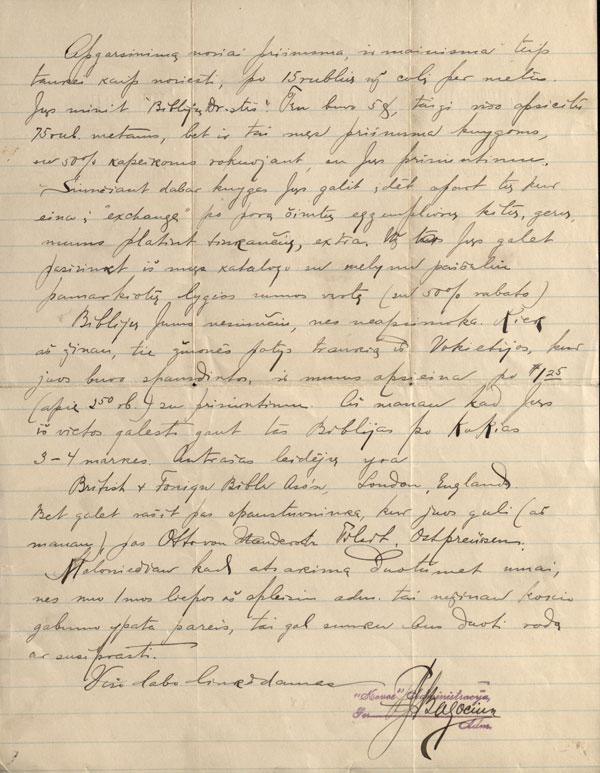 Apgarsinimą noriai priimsma, ir mainisma taip
tankei kaip noriesti, po 15 rublių už colį per metus.
Jųs minit "Biblijų Dr-stės". Tu buvo 5 č, taigi viso apsieitų
75 rub. metams, bet ir tai męs priimsma knygoms,
su 50% kapeikoms rokuojant, su Jųs prisiuntimu.
Siunčiant dabar knygas Jųs galit įdėt apart tų kur
eina į "exchange" po porą šimtų egzempliorių kitų, gerų,
mums platint tinkančių, extra. Už tas Jųs galet
pasirinkt iš męs katalogo su melynu paišeliu
pamarkiotų lygios sumos vertę (su 50% rabato)
Biblijų Jums nesiunčiu, nes neapsimoka. Kiek
aš žinau, tie žmonės patys traukia iš Vokietijos, kur
juos buvo spausdintos, ir mums apsieina po $1.25
(apie 2.50 rb.) su prisiuntimu. Aš manau kad Jųs
iš vietos galėsti gaut tas Biblijas po Kokias
3-4 markes. Antrašas leidėjų yra
British & Foreign Bible Assn, London, England
Bet galet rašit pas spaustuvninką, kur juos guli (aš
manau), pas Otto von Tilsit, Ostpreusen.
Meloniedžiau kad atsakimą duotumet umai,
nes nuo 1mos liepos aš apleisiu adm. tai nežinau kokio
gabumo ypata pareis, tai gal sunku bus duoti rodą
ar susiprasti.
Viso labo linkėdamas
"Kovos" Administracija
JB Bagocius
Adm.